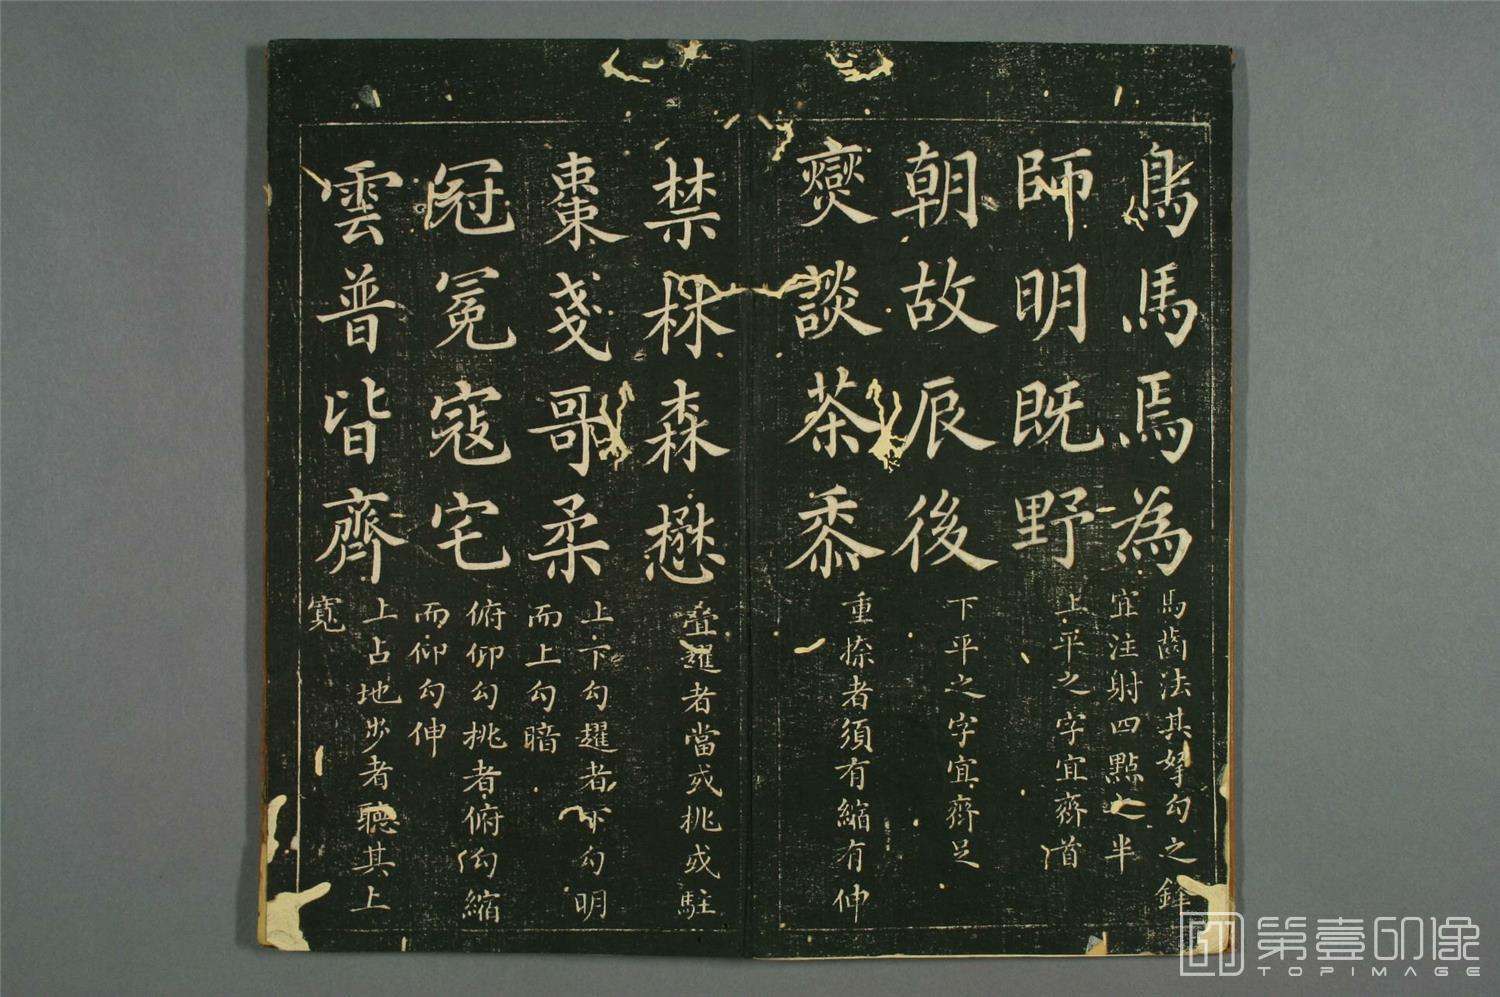 鳥馬焉為
馬齒法其努勾之鋒
宜注射四點之半
師明既野
上平之字宜齊首
朝故辰後
下平之字宜齊足
爕談茶黍
重捺者須有縮有伸
禁森懋
疊趯者當或挑或駐
棗戔哥柔
上下勾趯者下勾明
而上勾暗
冠冕寇宅
俯仰勾挑者俯勾縮
而仰勾伸
雲普皆齊
上占地步者聽其上
寬
第壹印像
TOPIMAGE